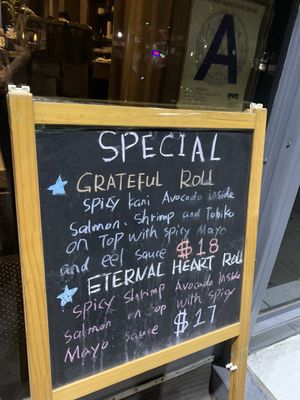 A
NYC
SPECIAL
GRATEFUL ROLL
spicy Kani Avocado inside
salmon. shrimp and Tobiko
on Top with spicy Mayo
and eel sauce $18
ETERNAL HEART ROLL
spicy shrimp Avocado inside
salmon on top with spicy
Mayo sauce $17